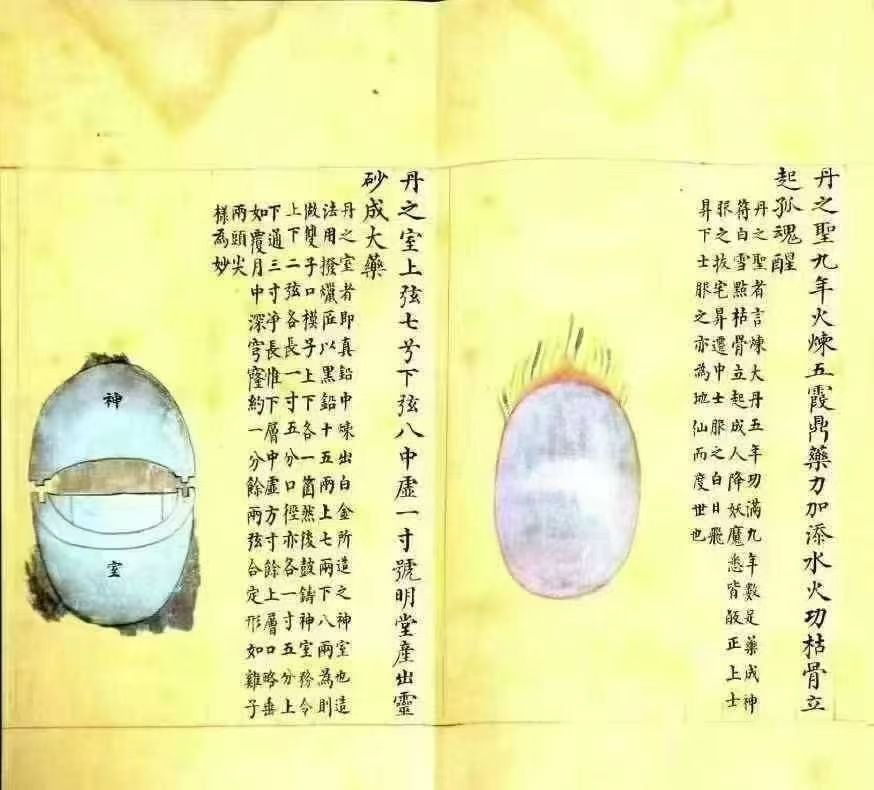 丹之聖九年火煉五霞鼎藥力加添水火功枯骨立
起孤魂醒
丹之聖者言煉大丹五年功滿九年數是藥成神
符白雪點枯骨立起成人降妖魔悉皆皈正上士
服之拔宅昇遷中士服之白日飛
昇下士服之亦為地仙而度世也
丹之室上弦七兮下弦八中虛一寸號明堂產出靈
砂成大藥
丹之室者即真鉛中煉出白金所造之神室也造
法用撥蠟匝以黑鉛十五兩上七兩下八兩為則
做雙子口模子上下各一箇然後鼓鑄神室務令
上下二弦各長一寸五分口徑亦各一寸五分上
下通三寸净長惟下層中虛方寸餘上層口略垂
如覆月中深穹窿約一分餘兩弦合定形如雞子
兩頭尖
樣為妙
神
室